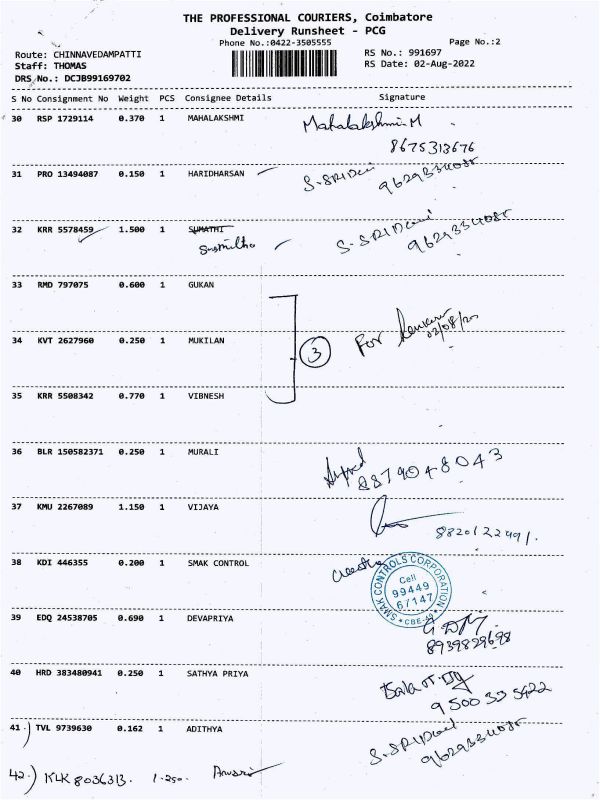 THE PROFESSIONAL COURIERS, Coimbatore
Delivery Runsheet - PCG
Phone No.:0422-3505555
Page No.:2
Route: CHINNAVEDAMPATTI
RS No.: 991697
Staff: THOMAS
RS Date: 02-Aug-2022
DRS No.: DCJB99169702
S No Consignment No Weight PCS Consignee Details Signature
30 RSP 1729114 0.370 1 MAHALAKSHMI Mahalakshmi.M
8675313676
31 PRO 13494087 0.150 1 HARIDHARSAN S.SRIDevi
9629334085
32 KRR 5578459 1.500 1 SUMATHI S.SRIDevi
Susmitha 9629334085
33 RMD 797075 0.600 1 GUKAN
34 KVT 2627960 0.250 1 MUKILAN 3 For
02/08/22
35 KRR 5508342 0.770 1 VIBNESH
36 BLR 150582371 0.250 1 MURALI
8879048043
37 KMU 2267089 1.150 1 VIJAYA
8820122991.
38 KDI 446355 0.200 1 SMAK CONTROL
SMAK CONTROLS CORPORATION
Cell
99449
67147
CBE-49
39 EDQ 24538705 0.690 1 DEVAPRIYA
8939829698
40 HRD 383480941 0.250 1 SATHYA PRIYA
9500335422
41.) TVL 9739630 0.162 1 ADITHYA S.SRIDevi
9629334085
42.) KLK 8036313. 1.250.